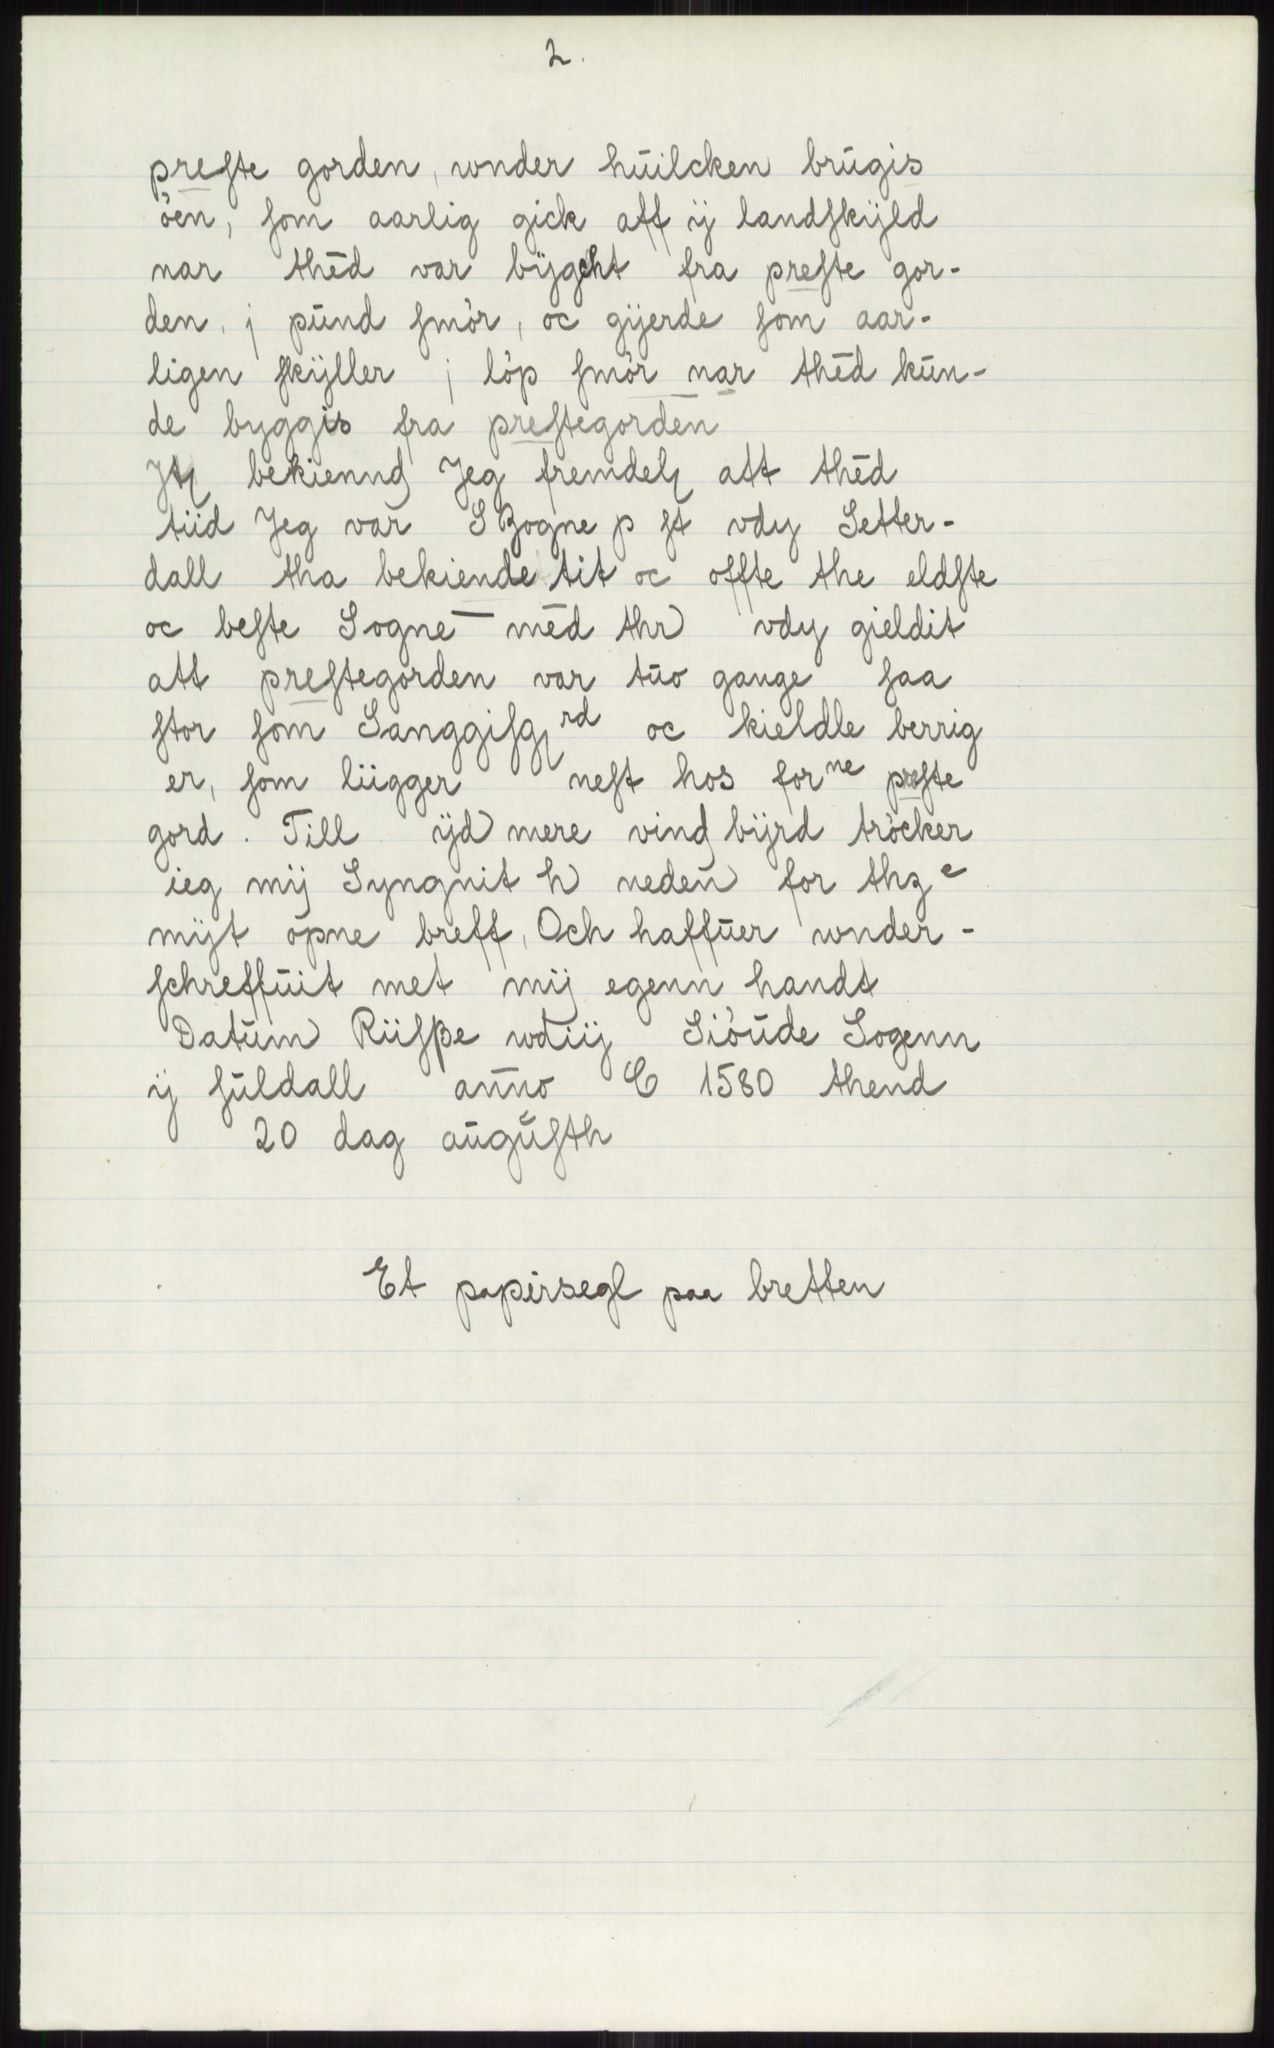 2.
preſte gorden, wnder huilcken brugis
öen, ſom aarlig gick aff ij landſkÿld
nar thed var bÿgcht fra preſte gor-
den, j pund ſmör, oc gÿerde ſom aar-
ligen ſkÿller j löp ſmör nar thed kun-
de byggis fra preſtegorden
bekienng Jeg fremdel att thed
tiid Jeg var SZogne p ſt vdy Setter-
dall tha bekiende tit oc offte the eldſte
oc beſte Sogne med thr vdy gieldit
att preſtegorden var tuo gange ſaa
ſtor ſom Sanggiſg rd oc kieldle berrig
er, ſom liigger neſt hos for ne preſte
gord. Till ÿd mere vind bÿrd tröcker
ieg mij Syngnit h neden for thz e
mÿt öpne breff, Och haffuer wnder-
ſchreffuit met mij egenn handt
Datum Riiſße wdiij Siöude Sogenn
ÿ ſuldall anno 1580 thend
20 dag auguſth
Et papirsegl paa bretten